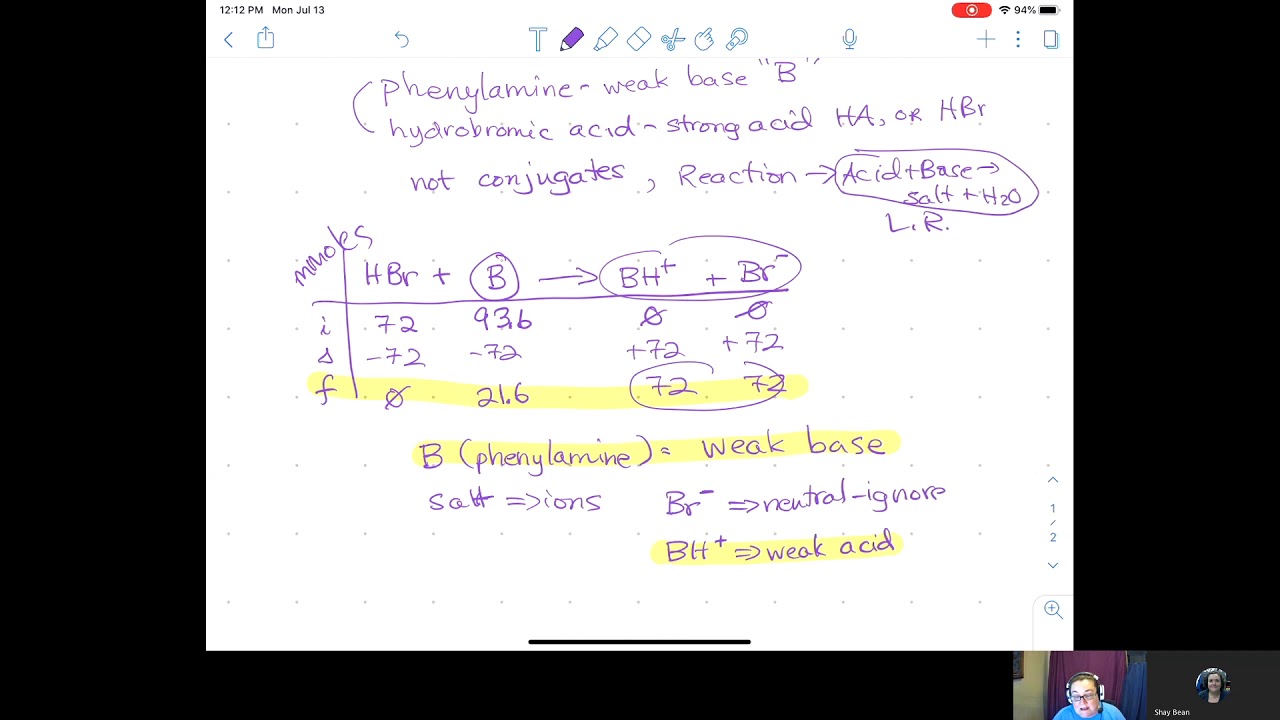 12:12 PM Mon Jul 13
94%
phenylamine - weak base "B"
hydrobromic acid - strong acid HA, OR HBr
not conjugates, Reaction → Acid + Base →
salt + H2O
L.R.
mmoles
HBr + B → BH+ + Br-
i 72 93.6 0 0
Δ -72 -72 +72 +72
f 0 21.6 72 72
B (phenylamine) = weak base
salt ⇒ ions Br- ⇒ neutral - ignore
BH+ ⇒ weak acid
1
/
2
Shay Bean